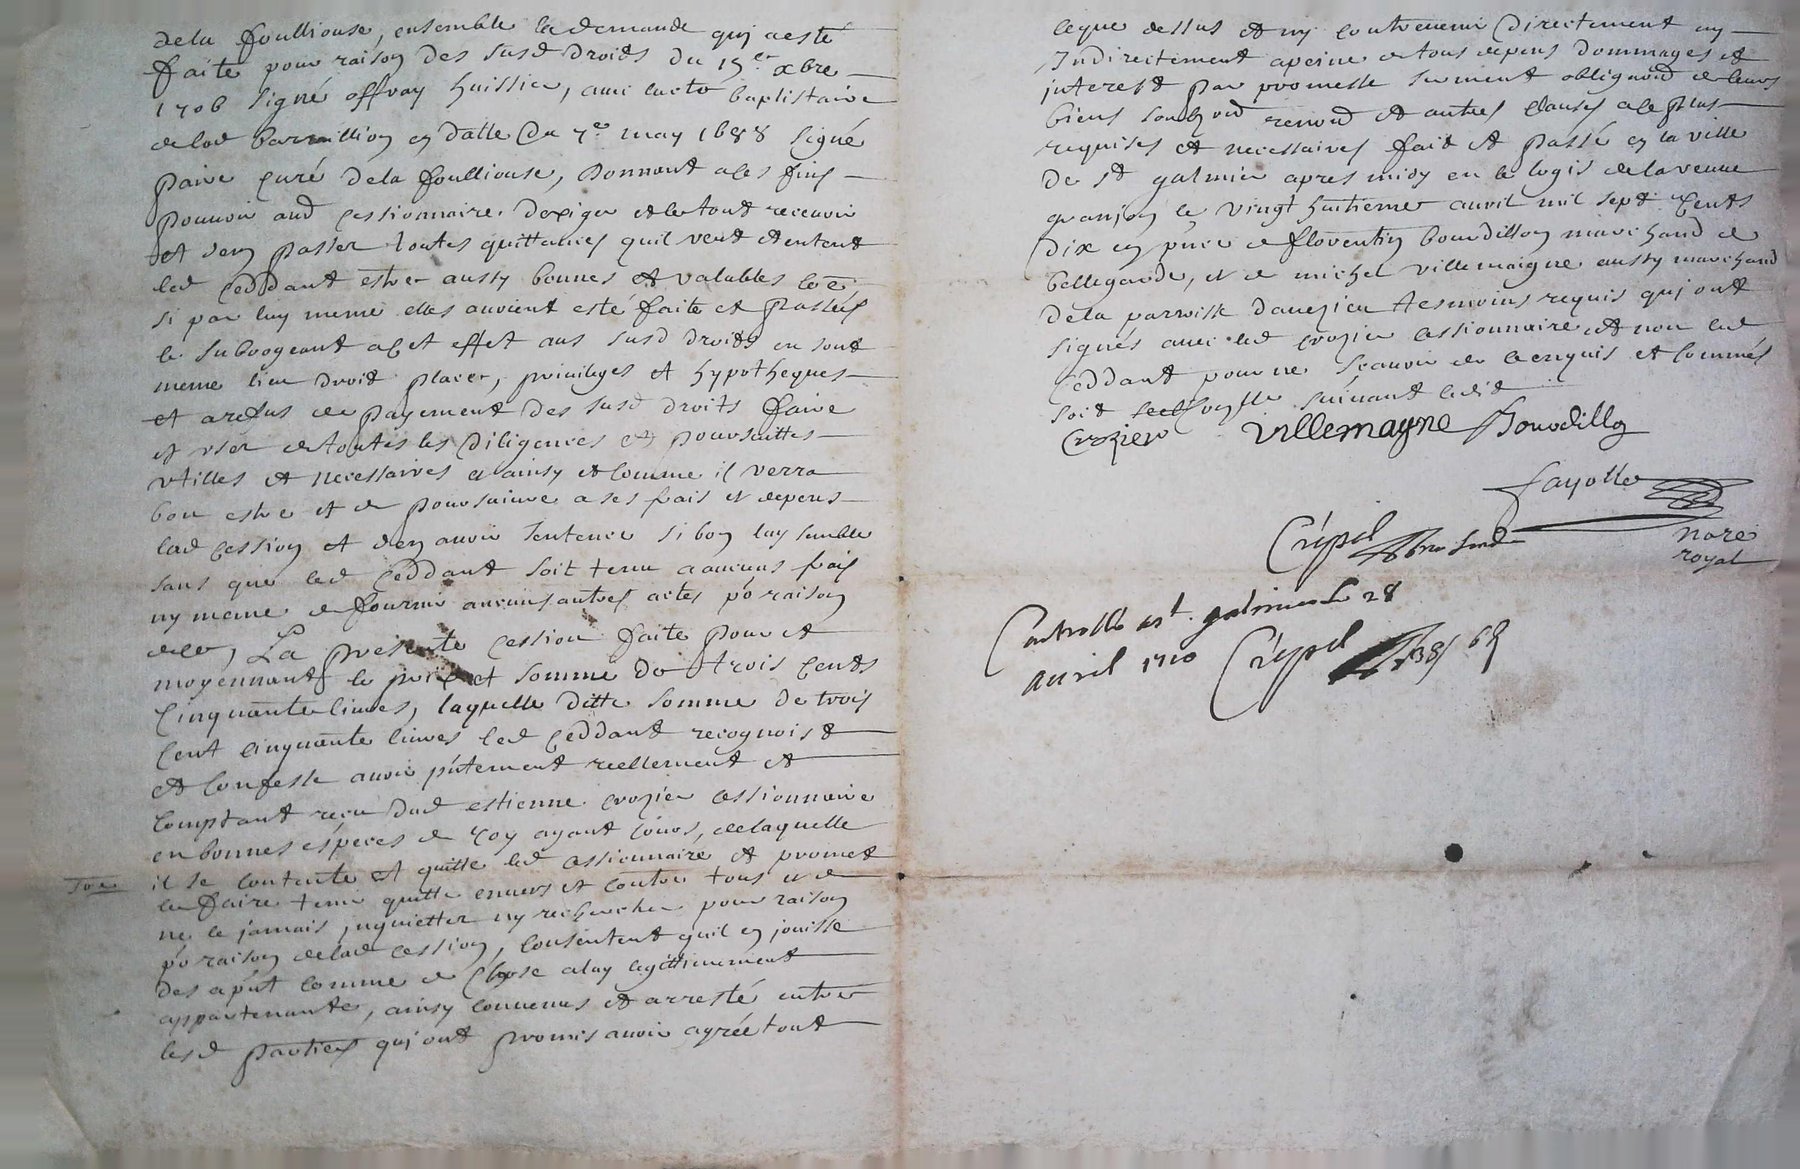 dela foulliouse, ensemble la demande quj a esté
faite pour raison des susd droits du 15e xbre
1706 signé offray huissier, avec lacte baptistaire
de lad barraillion en datte du 7e may 1688 signé
paire curé dela foulliouse, donnant a ces fins
pouvoir aud cessionnaire dexiger et le tout recevoir
et den passer toutes quittances quil veut et entent
led ceddant estre aussy bonnes et valables
si par luy meme elles avoient esté faite et passées
le subrogeant a cet effet aus susd droits en sont
meme lieu droit place, privileges et hypotheques
et a refus de payement des susd droits faire
et user de toutes les diligences et poursuittes
utilles et necessaires ainsy et comme il verra
bon estre et de poursuivre a ses frais et depens
lad cession et den avoir sentence si bon luy semble
sans que led ceddant soit tenu a aucuns frais
ny meme de fournir aucuns autres actes po raison
dece, La presente cession faite pour et
moyennant le prix et somme de trois cents
cinquante livres, laquelle ditte somme de trois
cent cinquante livres led ceddant recognoist
et confesse avoir p'ntement reellement et
comptant receu dud estienne crozier cessionnaire
en bonnes espéces de roy ayant cours, de laquelle
il se contente et quitte led cessionnaire et promet
le faire tenir quitte envers et contre tous et de
ne le jamais jnquietter ny rechercher pour raison
po raison delad cession, consentent quil en jouisse
des ap'nt comme de chose a luy legittimement
appartenante, ainsy convenus et arresté entre
lesd parties quj ont promis avoir agrée tout
ceque dessus et ny contrevenir directement ny
Indirectement a peine de tous depens dommages et
interest par promesse serment obligaon de leurs
biens renond et autres clauses a ce plus
requises et necessaires fait et passé en la ville
de st galmier apres midy en le logis dela veuve
granjon le vingt huitieme avril mil sept cents
dix en p'nce de floventin bourdillon marchand de
bellegarde, et de michel villemaigne aussy marchand
dela parroisse daveizieu tesmoins requis quj ont
signés avec led crozier cessionnaire et non led
ceddant pour ne scavoir de ce enquis et sommés
soit suivant ledit
Crozier Villemagne Bourdillon
fayolle
no.re
royal
Crépil
Controllé a st galmier le 28
avril 1710 Crépil